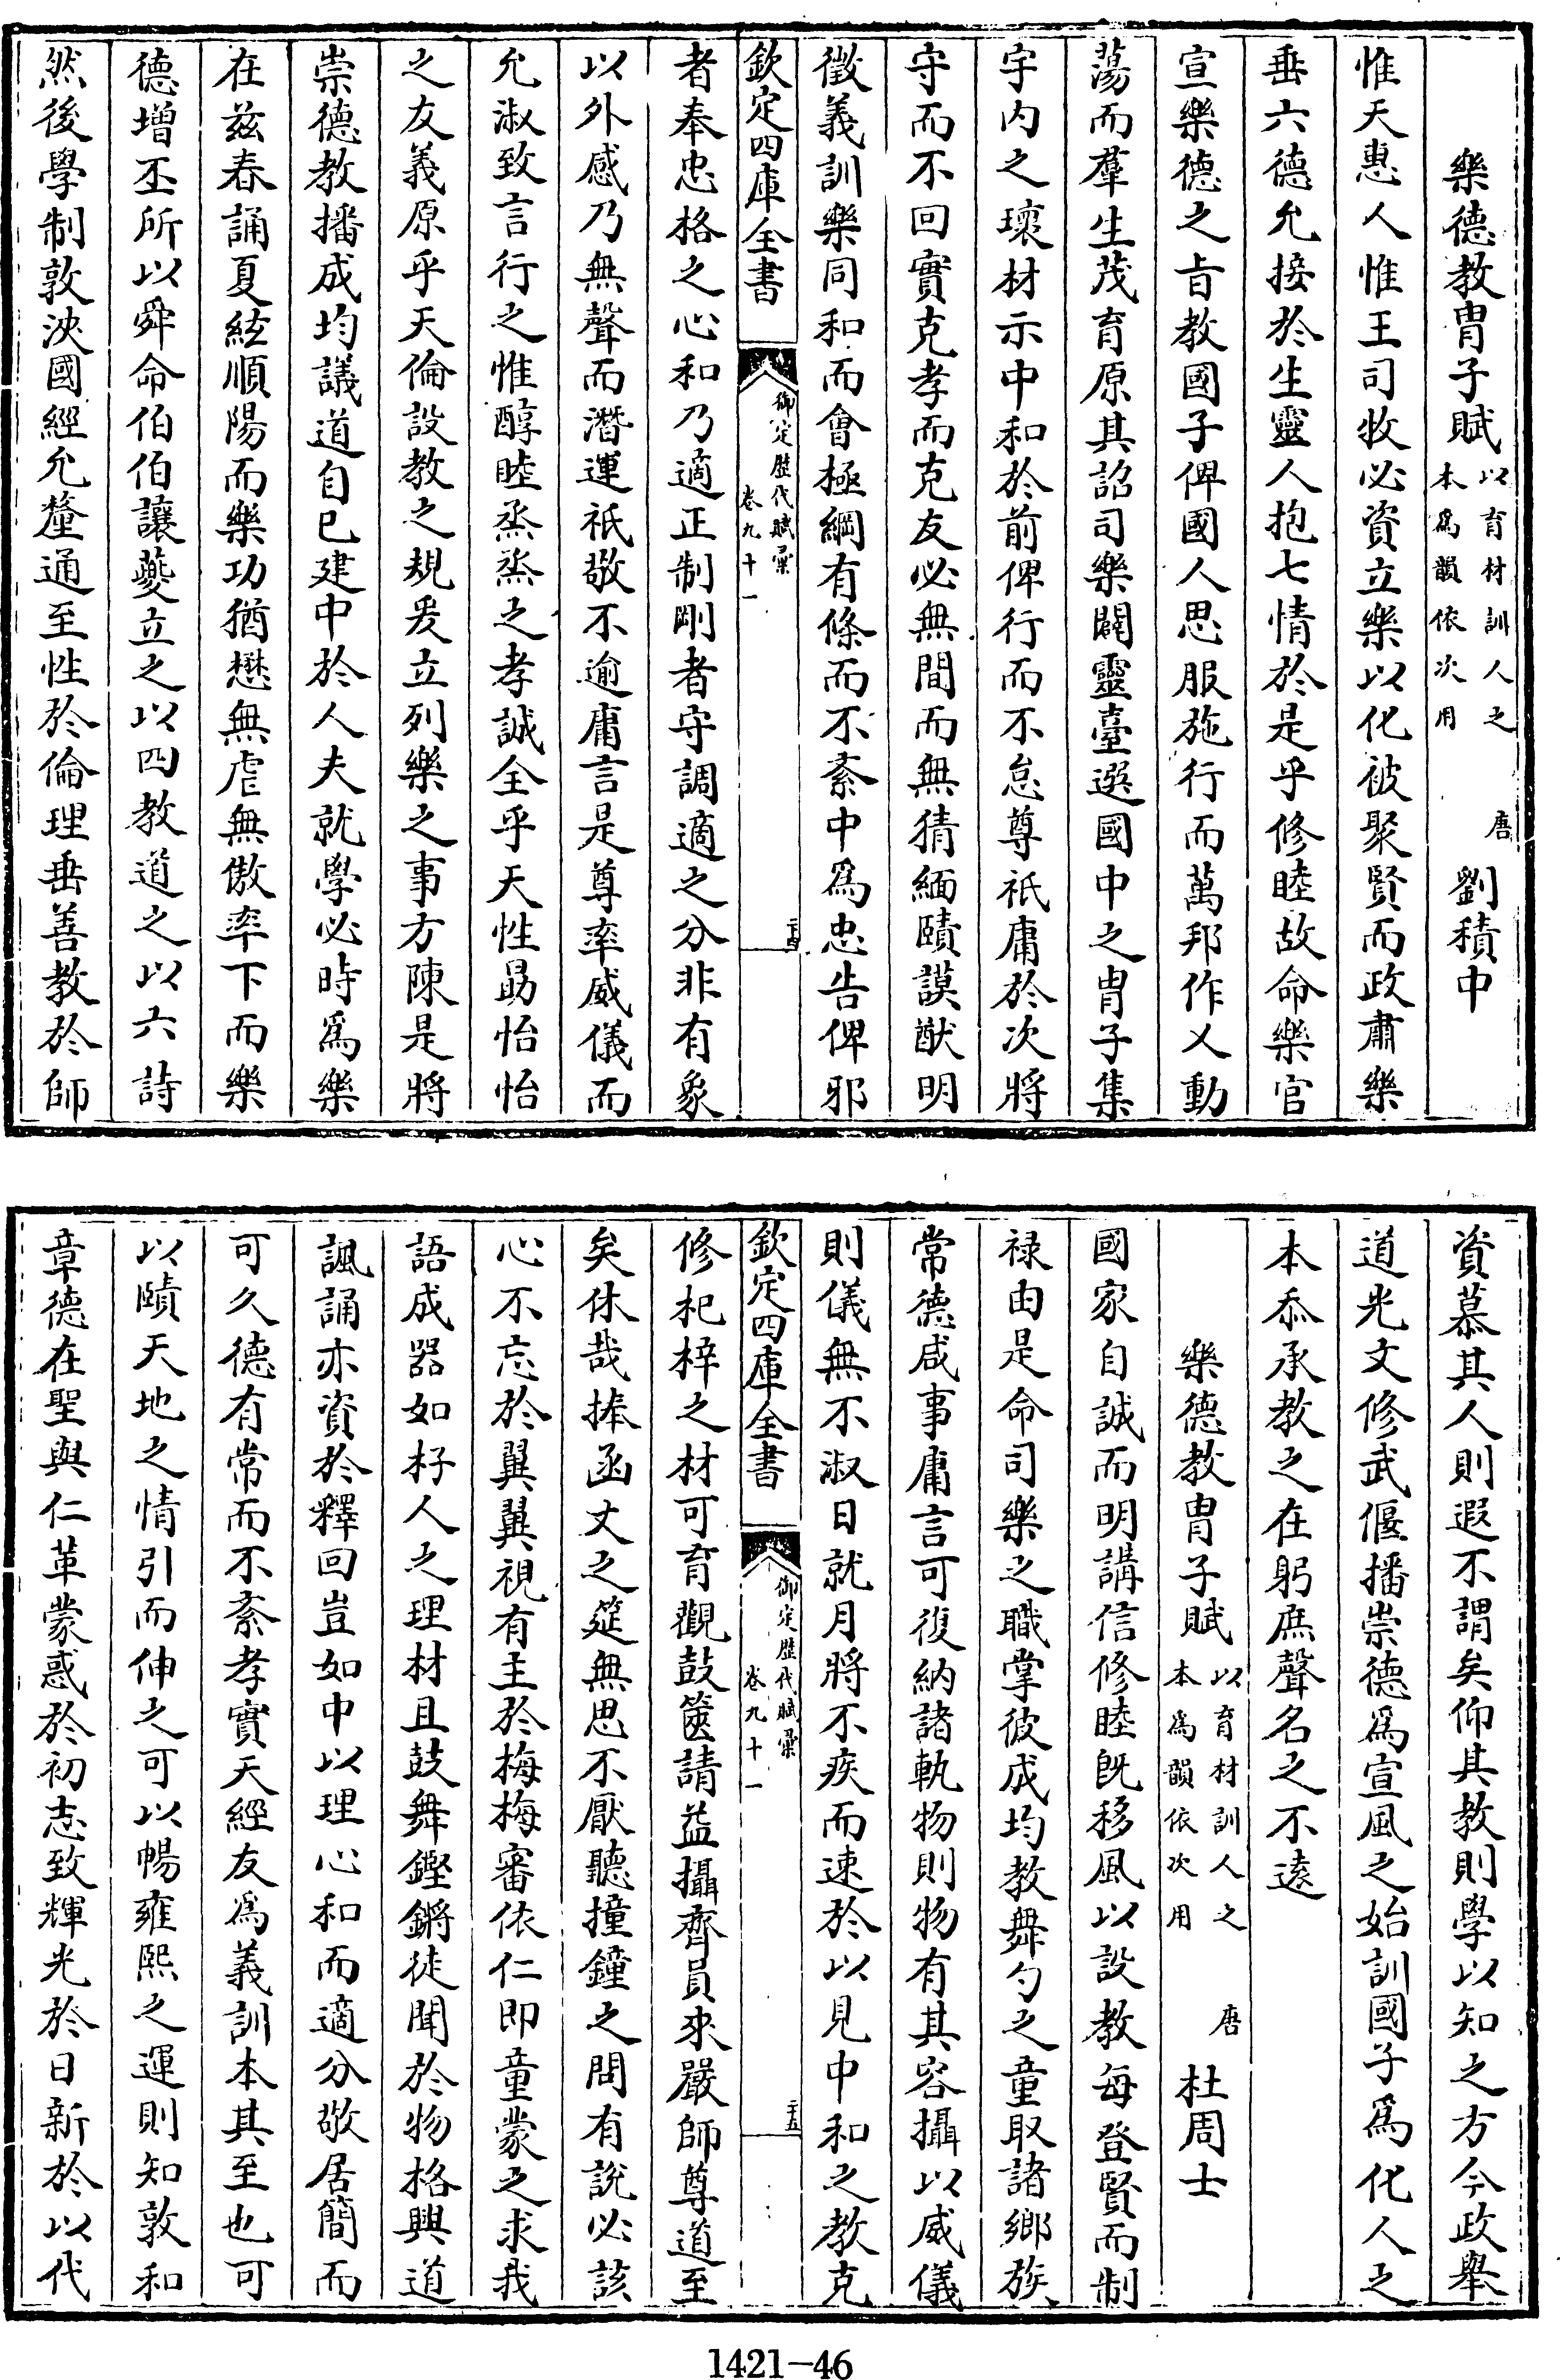 樂德教胄子賦以育材訓人之本爲韻依次用 唐 劉積中
惟天惠人惟王司牧必資立樂以化被聚賢而政肅樂
垂六德允接於生靈人抱七情於是乎修睦故命樂官
宣樂德之旨教國子俾國人思服施行而萬邦作乂動
蕩而羣生茂育原其詔司樂闢靈臺選國中之胄子集
宇内之瓌材示中和於前俾行而不怠尊祇庸於次將
守而不回實克孝而克友必無間而無猜緬賾謨猷明
徵義訓樂同和而會極綱有條而不紊中爲忠告俾邪
欽定四庫全書 御定歷代賦彙 卷九十一 二十四
者奉忠格之心和乃適正制剛者守調適之分非有象
以外感乃無聲而潛運祇敬不逾庸言是尊率威儀而
允淑致言行之惟醇睦烝烝之孝誠全乎天性勗怡怡
之友義原乎天倫設教之規爰立列樂之事方陳是將
崇德教播成均議道自已建中於人夫就學必時爲樂
在兹春誦夏絃順陽而樂功猶懋無虐無傲率下而樂
德增丕所以舜命伯伯讓夔立之以四教道之以六詩
然後學制敦洪國經允釐通至性於倫理垂善教於師
資慕其人則遐不謂矣仰其教則學以知之方今政舉
道光文修武偃播崇德爲宣風之始訓國子爲化人之
本忝承教之在躬庶聲名之不遠
樂德教胄子賦以育材訓人之本爲韻依次用 唐 杜周士
國家自誠而明講信修睦旣移風以設教每登賢而制
禄由是命司樂之職掌彼成均教舞勺之童取諸鄉族
常德咸事庸言可復納諸軌物則物有其容攝以威儀
則儀無不淑日就月將不疾而速於以見中和之教克
欽定四庫全書 御定歷代賦彙 卷九十一 二十五
修杞梓之材可育觀鼓篋請益攝齊員來嚴師尊道至
矣休哉捧函丈之筵無思不厭聽撞鐘之問有說必該
心不忘於翼翼視有主於梅梅審依仁即童蒙之求我
語成器如杍人之理材且鼓舞鏗鏘徒聞於物格興道
諷誦亦資於釋回豈如中以理心和而適分敬居簡而
可久德有常而不紊孝實天經友爲義訓本其至也可
以賾天地之情引而伸之可以暢雍熙之運則知敦和
章德在聖與仁革蒙惑於初志致輝光於日新於以代
1421-46